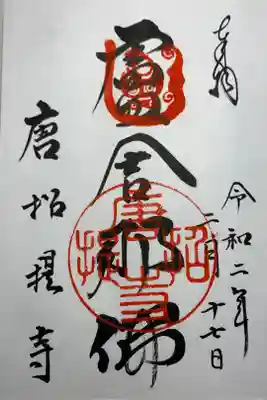 奉拝
令和二年
二月十七日
盧舎那佛
唐招提寺
唐招提寺